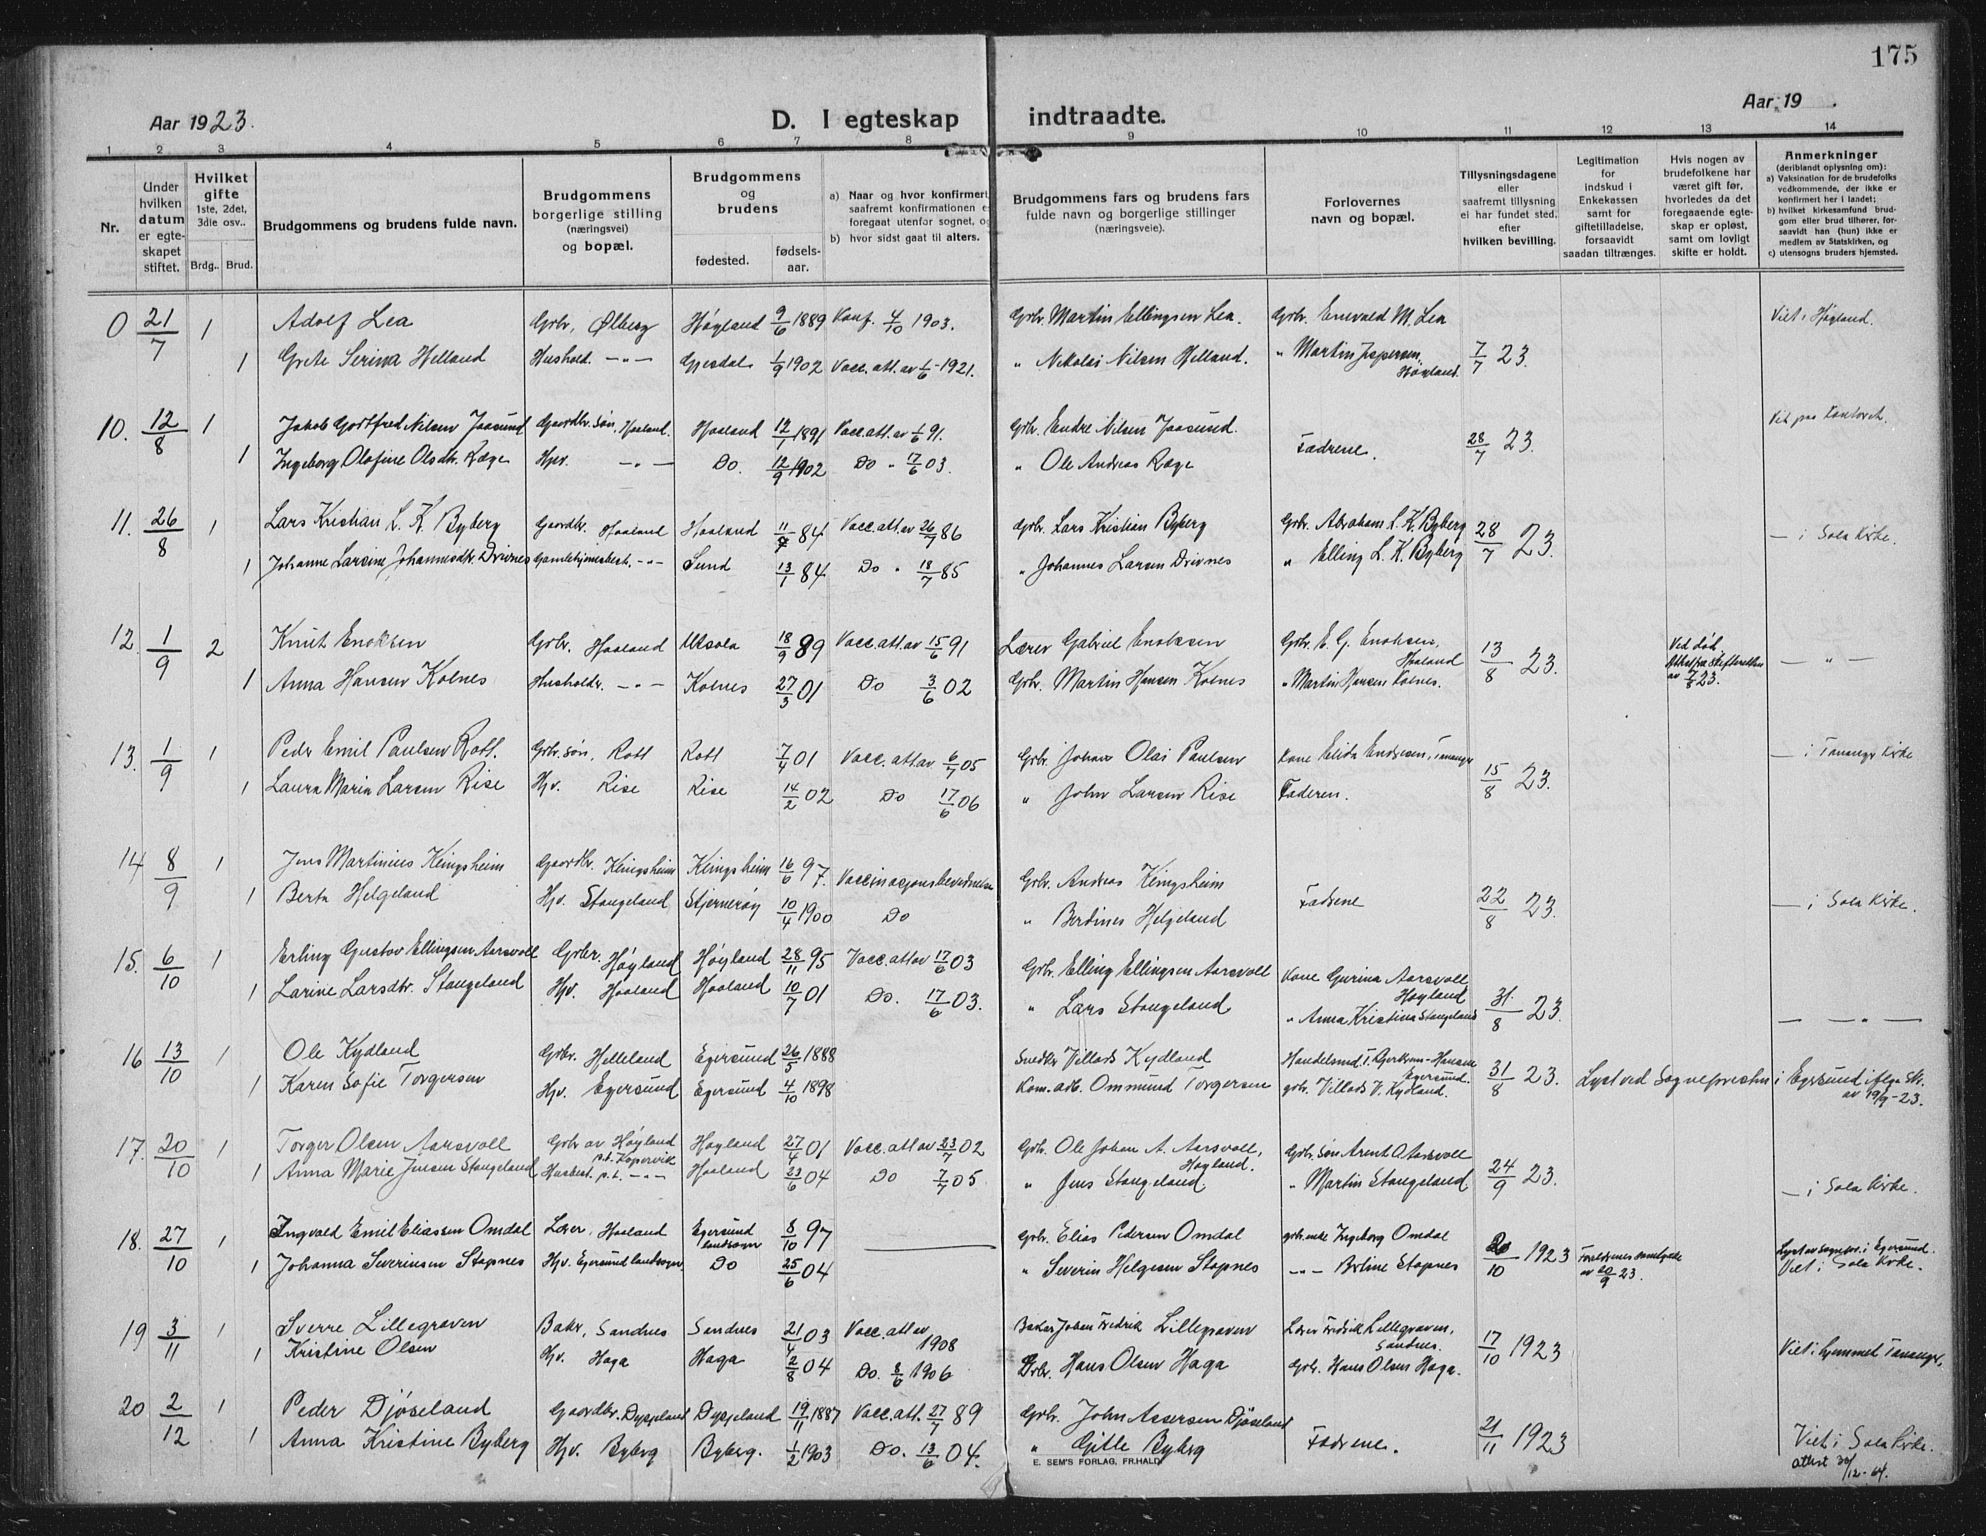 175
Aar 1923.
D. I egteskap indtraadte.
Aar 19 .
1 2 3 4 5 6 7 8 9 10 11 12 13 14
Nr.
Under hvilken datum er egteskapet stiftet.
Hvilket gifte
1ste, 2det, 3die osv..
Brdg.. Brud.
Brudgommens og brudens fulde navn.
Brudgommens borgerlige stilling (næringsvei) og bopæl.
Brudgommens og brudens
fødested.
fødsels-aar.
a) Naar og hvor konfirmert, saafremt konfirmationen e foregaat utenfor sognet, og
b) hvor sidst gaat til alters.
Brudgommens fars og brudens fars fulde navn og borgerlige stillinger (næringsveie).
Forlovernes navn og bopæl.
Tillysningsdagene eller saafremt tillysning ei har fundet sted. efter hvilken bevilling.
Legitimation for indskud i Enkekassen samt for giftetilladelse, forsaavidt saadan tiltrænges.
Hvis nogen av brudefolkene har været gift før, hvorledes da det foregaaende egteskap er opløst, samt om lovligt skifte er holdt.
Anmerkninger (deriblandt oplysning om):
a) Vaksination for de brudefolks vedkommende, der ikke er konfirmert her i landet;
b) hvilket kirkesamfund brudgom eller brud tilhører, forsaavidt han (hun) ikke er medlem av Statskirken, og
c) utensogns bruders hjemsted.
0 21/7 1 Adolf Lea Grbr, Ølberg Høyland 9/6 1889 Konf. 4/10 1903. Grbr. Martin Ellingsen Lea. Grbr. Enevald M. Lea Viet i Høyland.
1 Grete Serina Helland Hushold. -"- Gjesdal 1/9 1902 Vacc. att. av 1/6-1921. " Nikolai Nilsen Helland. " Martin Jespersen, Høyland. 7/7 23.
10. 12/8 1 Jakob Gottfred Nilsen Jaasund Gaardbr. Søn, Haaland. Haaland 12/1 1891 Vacc. att. av 1/6 91. Grbr. Endre Nilsen Jaasund. Fædrene. 28/7 23. Viet paa Kontoret.
1 Ingeborg Olafine Olsdtr. Ræge Hjv. -"- Do. 12/9 1902 Do " 17/6 03. " Ole Andreas Ræge
11. 26/8 1 Lars Kristian L. K. Byberg Gaardbr. Haaland Haaland 84 Vacc. att. av 26/7 86 Grbr. Lars Kristian Byberg Grbr. Abraham L. K. Byberg 28/7 23. — i Sola Kirke.
1 Johanne Larsine Johannesdtr. Drivnes Gamlehjemsbest. -"- Sund 13/1 84 Do " 18/7 85 " Johannes Larsen Drivnes " Elling L. K. Byberg
12. 1/9 2 Knut Enoksen Grbr. Haaland Utsola 18/9 89 Vacc. att. av 15/6 91 Lærer Gabriel Enoksen Grbr. E. G. Enoksen, Haaland 13/8 23. Ved død, Attest fra skifteretten av 7/8 23. — " —
1 Anna Hansen Kolnes Husholdr. -"- Kolnes 27/3 01 Do 3/6 02 Grbr. Martin Hansen Kolnes " Martin Hansen Kolnes.
13. 1/9 1 Peder Emil Paulsen Rott. Grbr. søn, Rott Rott 7/4 01 Vacc. att av 6/7 05 Grbr. Johan Olai Paulsen Kone Elida Endresen, Tananger 15/8 23. — i Tananger Kirke
1 Laura Maria Larsen Rise Hjv. Rise Rise 14/2 02 Do 17/6 06 " John Larsen Rise Faderen.
14 8/9 1 Jens Martinius Kingsheim Gaardbr. Kingsheim Kingsheim 16/6 97. Vaccinasjonsbevidnelse Grbr. Andreas Kingsheim Fædrene 22/8 23. — i Sola Kirke.
1 Berta Helgeland Hjv. Stangeland Stjernerøy 10/4 1900 Do " Berdines Helgeland
15. 6/10 1 Erling Gustav Ellingsen Aarsvoll Grbr. Høyland Høyland 28/11 95 Vacc. att av 17/6 03 Grbr. Elling Ellingsen Aarsvoll Kone Gurina Aarsvoll Høyland 31/8 23.
1 Larine Larsdtr. Stangeland Hjv. Haaland Haaland 10/7 01 Do. 17/6 03. " Lars Stangeland " Anna Kristina Stangeland — " —
16 13/10 1 Ole Kydland Grbr. Helleland Egersund 26/5 1888 Snedker Villads Kydland Handelsmd I. Gjertsen-Hansen Egersund. 31/8 23. Lyst ved Sognepresten i Egersund ifølge sk. av 19/9-23.
1 Karen Sofie Torgersen Hjv. Egersund Egersund 4/10 1898 Kom. arb. Ommund Torgersen grbr. Villads V. Kydland.
17. 20/10 1 Torger Olsen Aarsvoll Grbr av Høyland p.t. Kopervik Høyland 27/4 01 Vacc. att av 23/7 02 Grbr. Ole Johan A. Aarsvoll, Høyland. Grbr. Søn Arent O Aarsvoll 24/9 23.
1 Anna Marie Jensen Stangeland Husbest. p.t. -"- Haaland 23/6 04 Do 7/7 05 " Jens Stangeland. " Martin Stangeland — i Sola Kirke.
18. 27/10 1 Ingvald Emil Eliassen Omdal Lærer, Haaland Egersund landsogn 8/10 97 — Grbr. Elias Pedersen Omdal grbr.enke Ingeborg Omdal 20/10 1923 Foreldrenes samtykke av 20/9 23. Lyst av sognepr. i Egersund. Viet i Sola Kirke.
1 Johanna Severinsen Stapnes Hjv. Egersund landsogn Do 25/6 04 " Severin Helgesen Stapnes -"- Berline Stapnes
19 3/11 1 Sverre Lillegraven Baker, Sandnes Sandnes 21/4 03 Vacc. att av 1908 Baker Johan Fredrik Lillegraven Lærer Fredrik Lillegraven, Sandnes. 17/10 1923 Viet i hjemmet Tananger.
1 Kristine Olsen Hjv. Haga Haga 2/8 04 Do. 8/6 1906 Grbr. Hans Olsen Haga Grbr. Hans Olsen Haga.
20 2/12 1 Peder Djøseland Gaardbr. Dysjeland Dysjeland 19/11 1887 Vacc. att. 27/7 89 Grbr. John Assersen Djøseland Fædrene. 21/11 1923 Viet i Sola Kirke.
1 Anna Kristine Byberg Hjv. Byberg Byberg. 1/2 1903 Do. 13/6 04. " Gitle Byberg attest 30/12-64.
E. SEM'S FORLAG, FR.HALD